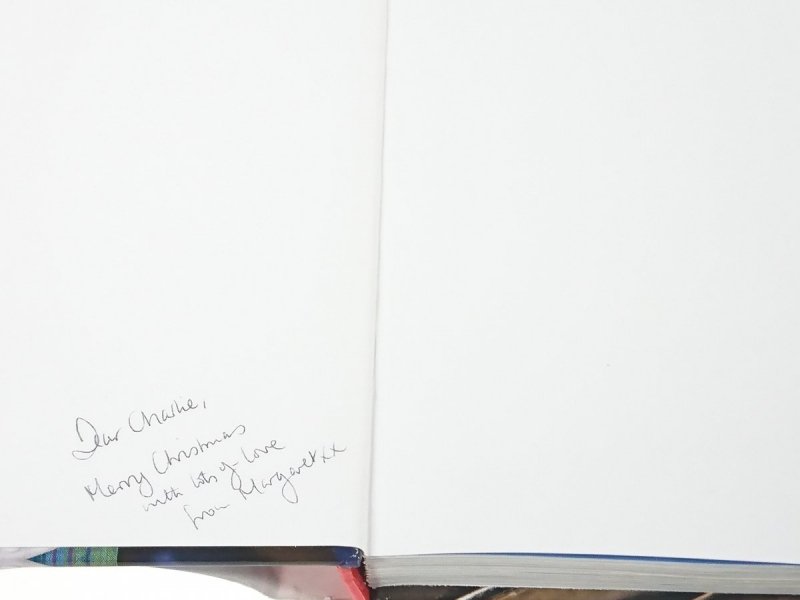 Dear Charlie,
Merry Christmas
with lots of love
from Margaret xx